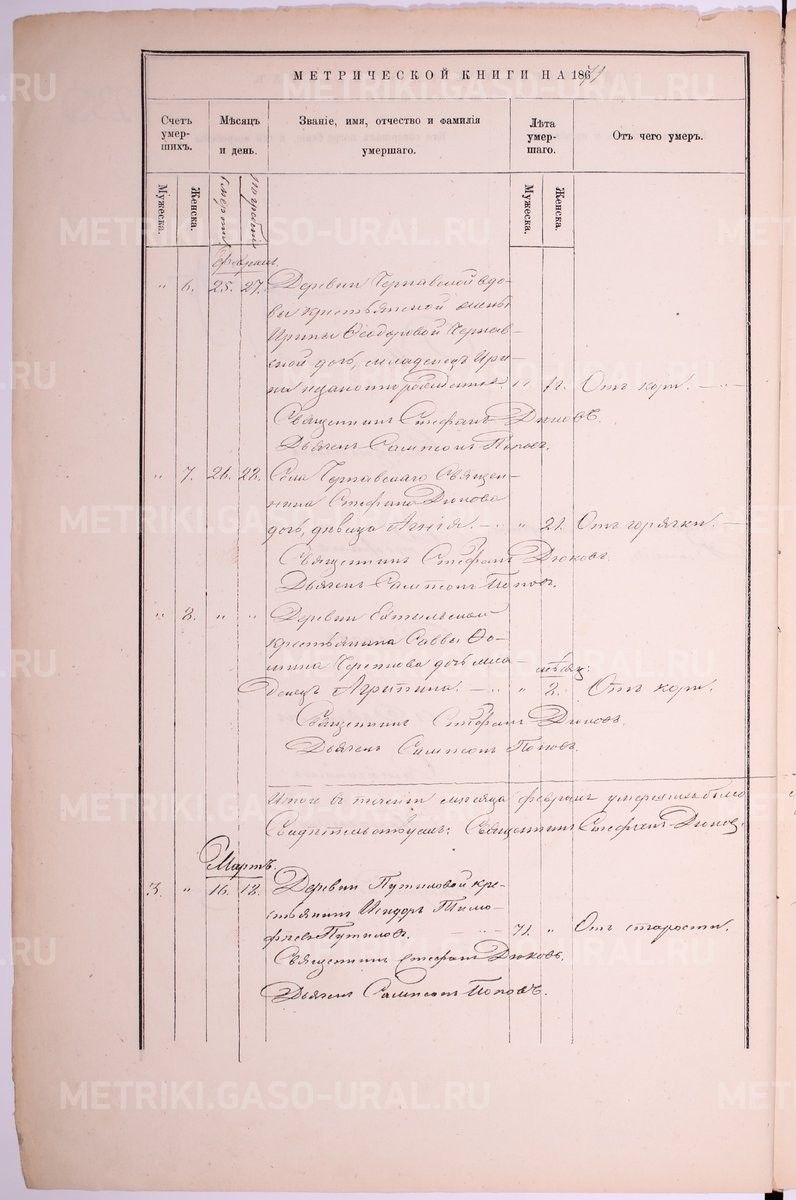 МЕТРИЧЕСКОЙ КНИГИ НА 186
Счетъ умер-шихъ.
Мѣсяцъ и день.
Званіе, имя, отчество и фамилія умершаго.
Лѣта умер-шаго.
Отъ чего умеръ.
Мужеска.
Женска.
смерти
погребенія
Мужеска.
Женска.
Февраль.
" 6. 25. 27. Деревни Чернавской вдо-
вы крестьянской жены
Ирины Ѳеодоровой Чернав-
ской дочь, младенецъ Ири-
на незаконнорожденная. "
Отъ кори.
Священникъ Стефанъ Дюковъ.
Дьячекъ Сампсонъ Поповъ.
" 7. 26. 28. Села Чернавскаго Священ-
ника Стефана Дюкова
дочь, дѣвица Агнія. — " 21. Отъ горячки. —
Священникъ Стефанъ Дюковъ.
Дьячекъ Сампсонъ Поповъ.
" 8. " " Деревни
крестьянина Саввы Ѳо-
мина дочь мла-
мѣсяц:
денецъ Агрипина. — " 2. Отъ кори.
Священникъ Стефанъ Дюковъ.
Дьячекъ Сампсонъ Поповъ.
Итого въ теченіи мѣсяца февраля умершихъ было
Свидѣтельствуемъ: Священникъ Стефанъ Дюковъ.
Мартъ.
3. " 16. 18. Деревни Путиловой кре-
стьянинъ Исидоръ Тимо-
фѣевъ Путиловъ. — 71. " Отъ старости.
Священникъ Стефанъ Дюковъ.
Дьячекъ Сампсонъ Поповъ.
METRIKI.GASO-URAL.RU